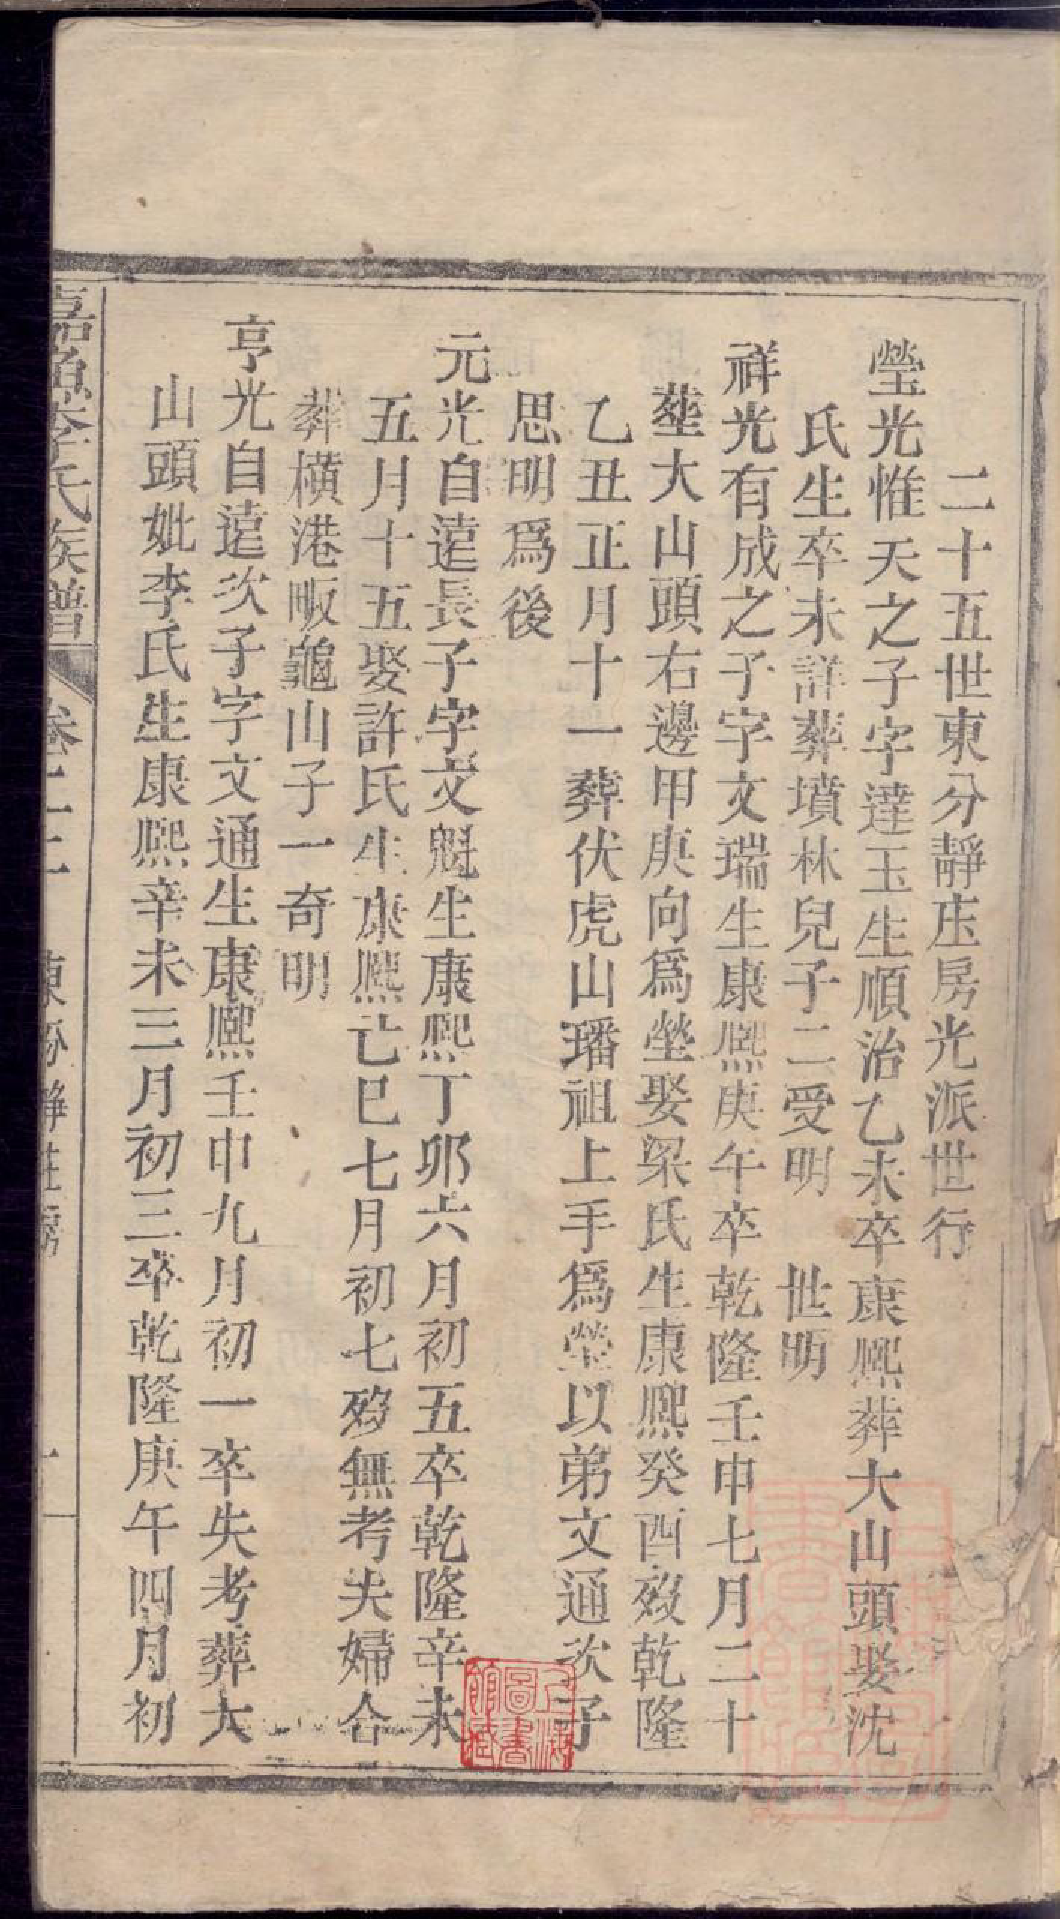 二十五世東分靜庄房光派世行
瑩光惟天之子字達玉生順治乙未卒康熙葬大山頭娶沈
氏生卒未詳葬墳林兒子二受明 世明
祥光有成之子字文瑞生康熙庚午卒乾隆壬申七月二十
塟大山頭右邊甲庚向爲塋娶梁氏生康熙癸酉歿乾隆
乙丑正月十一葬伏虎山璠祖上手爲塋以弟文通次子
思明爲後
元光自遠長子字文魁生康熙丁卯六月初五卒乾隆辛未
五月十五娶許氏生康熙己巳七月初七歿無考夫婦合
葬橫港畈龜山子一奇明
亨光自遠次子字文通生康熙壬申九月初一卒失考葬大
山頭妣李氏生康熙辛未三月初三卒乾隆庚午四月初
嘉魚李氏族譜 卷二二 東分靜庄房 一
上海圖書館藏